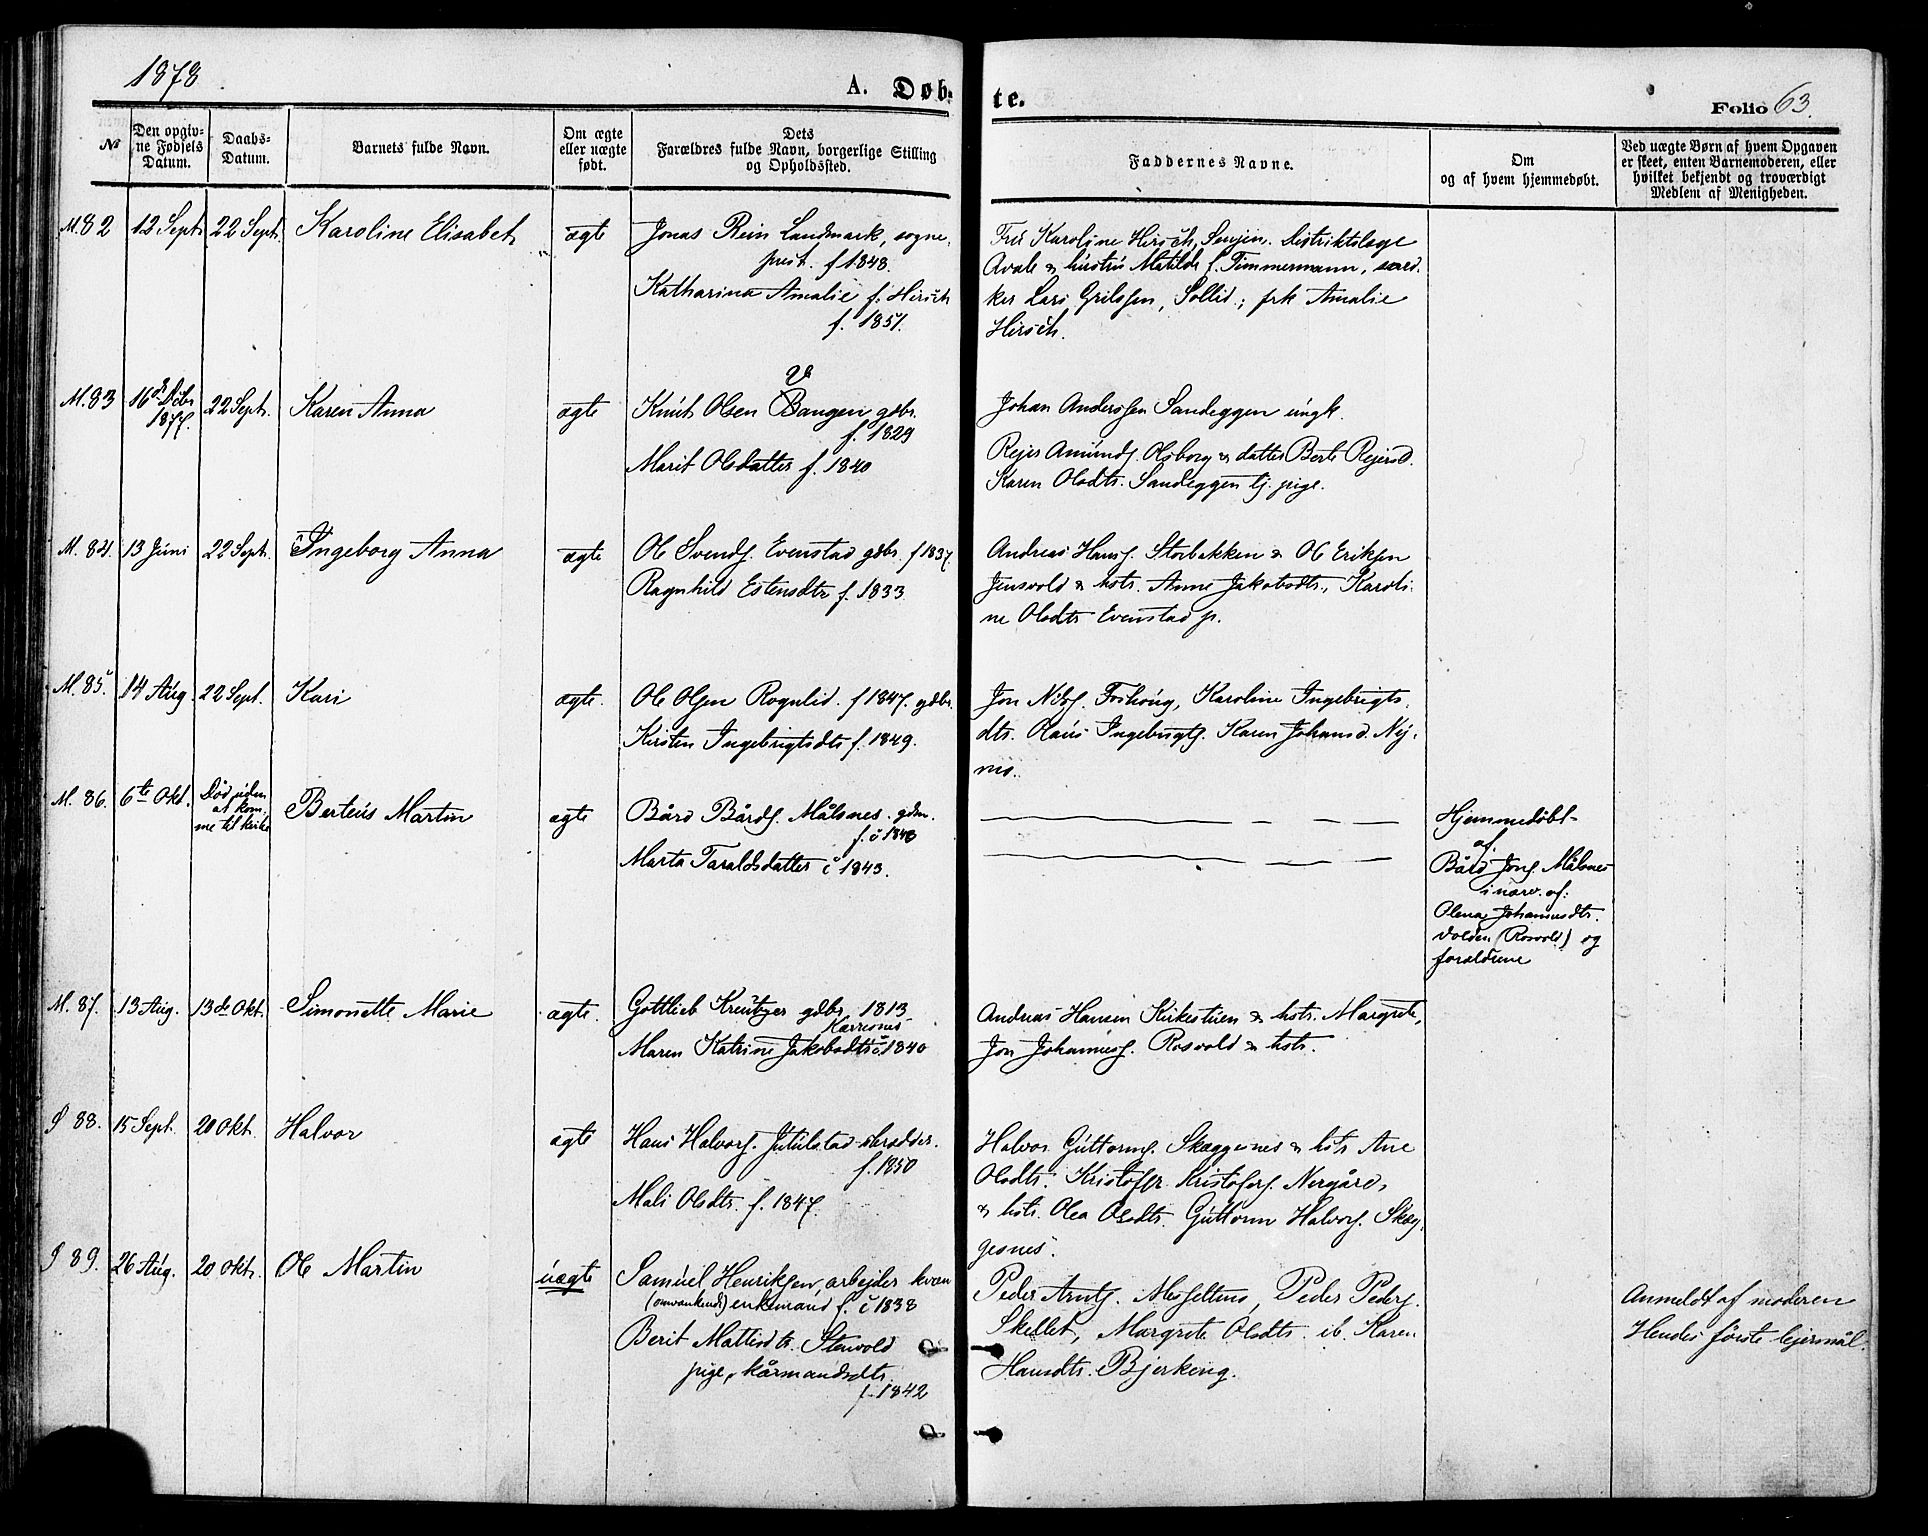 1878
A. Døb-
te.
Folio 63.
№
Den opgiv-
ne Fødsels
Datum.
Daabs-
Datum.
Barnets fulde Navn.
Om ægte
eller uægte
født.
Dets
Forældres fulde Navn, borgerlige Stilling
og Opholdssted.
Faddernes Navne.
Om
og af hvem hjemmedøbt.
Ved uægte Børn af hvem Opgaven
er skeet, enten Barnemoderen, eller
hvilket bekjendt og troværdigt
Medlem af Menigheden.
M. 82
12 Sept.
22 Sept.
Karoline Elisabet
ægte
Jonas Rein Landmark, sogne-
prest. f 1848.
Katharina Amalie f. Hirsch
f. 1851.
Frü Karoline Hirsch, Senjen. Distriktslæge
Avale & hüstrü Matilde f. Timmermann,
ker Lars Grilssen, Sollid; frk Amalie
Hirsch.
M. 83
16de Debr
1877.
22 Sept.
Karen Anna
ægte
Knüt Olsen Bangen gdbr.
f. 1829
Marit Olsdatter f. 1840
Johan Anderssen Sandeggen üngk.
Rejer Amünds. Olsborg & datter Berte Rejersd.
Karen Olsdtr. Sandeggen tj. pige.
M. 84.
13 Jüni
22 Sept.
Ingeborg Anna
ægte
Ole Svends. Evenstad gdbr. f 1837
Ragnhild Estensdtr f. 1833
Andreas Hans. Storbakken & Ole Eriksen
Jensvold & hstr. Anne Jakobsdtr., Karoli-
ne Olsdtr Evenstad p.
M. 85.
14 Aüg.
22 Sept.
Kari
ægte.
Ole Olsen Rognlid. f 1847. gdbr.
Kirsten Ingebrigtsdtr f. 1849.
Jon Nils. Foshoüg, Karoline Ingebrigts.
dtr. Olaüs Ingebrigts. Karen Johansd. Nÿ-
mo.
M. 86.
6te Okt.
Død üden
at kom-
me til kirke
Berteüs Martin
ægte
Bård Bårds. Målsnes. gdm.
f. i 1848
Marta Taraldsdatter i 1843.
Hjemmedøbt
af
Bård Jons. Målsnes
i nærv. af:
Olena Johannesdtr.
Volden (Rosvold) og
forældrene
M. 87.
13 Aug.
13de Okt.
Simonette Marie
ægte.
Gottlieb Kreutzer gdbr. 1813
Karresnes
Maren Katrine Jakobsdtr i 1840
Andreas Hansen Kirkestüen & hstr. Margrete,
Jon Johannes. Rosvold & hstr.
88.
15 Sept.
20 Okt.
Halvor
ægte
Hans Halvors. Jutülstad skrædder.
f. 1850
Mali Olsdtr. f. 1847.
Halvor Güttorms. Skæggesnes & hstr Ane
Olsdtr. Kristoffer Kristofers. Nergård,
& hstr. Olea Olsdtr. Güttorm Halvors. Skæg-
gesnes.
89.
26 Aüg.
20 Okt.
Ole Martin
üægte
Samüel Henriksen, arbejder kvæn
(omvankende) enkemand f. i 1838
Berit Mattisdtr. Stenvold
pige, kårmandsdtr.
f. 1842
Peder Arnts. Moseltnes, Peder Peders.
Skellet, Margrete Olsdtr. ib. Karen
Hansdtr. Bjerkeng.
Anmeldt af moderen
Hendes første lejermål.